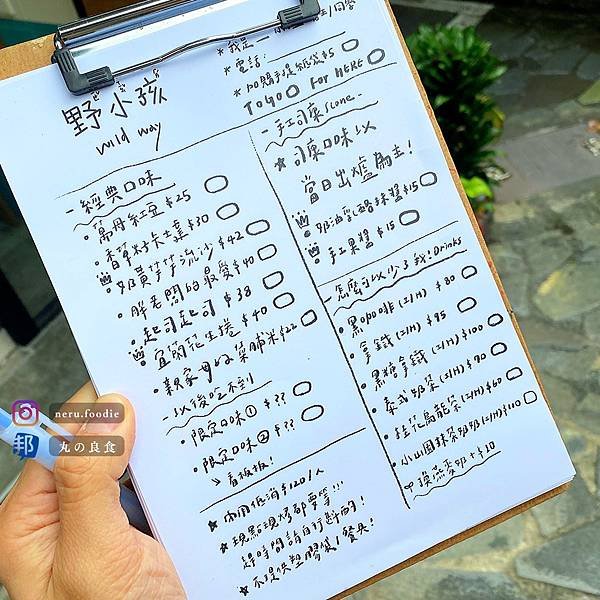 野小孩
wild way
* 電話:
* 加購手提紙袋$5
TOGO FOR HERE
- 經典口味
• 萬丹紅豆 $25
• 香草好卡士達 $30
• 奶黃芋芋流沙 $42
• 胖老闆的最愛 $40
• 起司起司 $38
• 宜蘭花生捲 $40
• 親家母ㄉ菜脯米 $22
- 以後吃不到
• 限定口味① $??
• 限定口味② $??
↘ 看板板!
* 內用低消$120/人
* 現點現烤都要等!!!
趕時間請自行斟酌!
* 不提供塑膠袋/餐具!
- 手工司康Scone -
* 司康口味以
當日出爐為主!
奶油乳酪抹醬$15
手工果醬 $15
- 怎麼可以少了我! Drinks
• 黑咖啡 (I/H) $80
• 拿鐵 (I/H) $95
• 黑糖拿鐵 (I/H) $100
• 泰式奶茶 (I/H) $90
• 桂花烏龍茶 (I/H) $60
• 小山園抹茶奶 (I/H) $100
換燕麥奶 + $20
neru.foodie
丸の良食